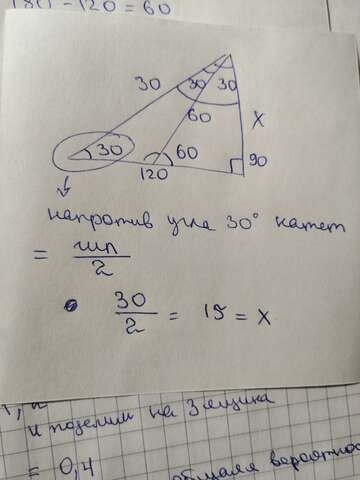 180 - 120 = 60
30
30 30
60
x
30
60
90
120
напротив угла 30° катет
= гип
2
30
2
= 15 = x
и поделим на 3 ящика
= 0,4
общая вероятнос